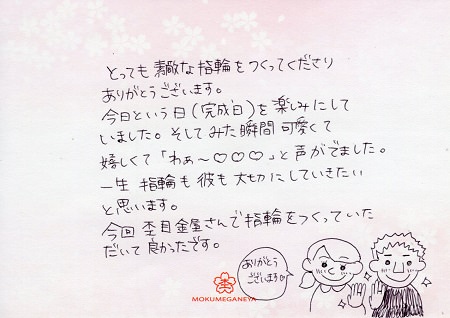 とっても素敵な指輪をつくってくださり
ありがとうございます。
今日という日(完成日)を楽しみにして
いました。そしてみた瞬間可愛くて
嬉しくて「わぁ〜♡♡♡」と声がでました。
一生 指輪も彼も大切にしていきたい
と思います。
今回 杢目金屋さんで指輪をつくっていた
だいて良かったです。
ありがとう
ございます♡
MOKUMEGANEYA